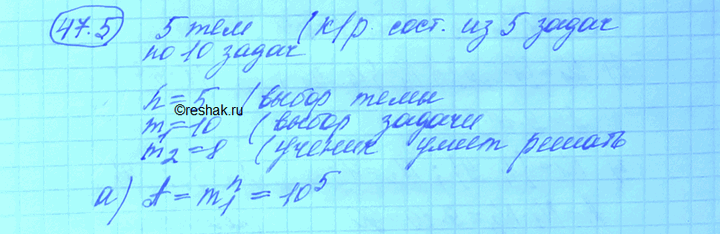 47.5 5 тем (к/р. сост. из 5 задач
по 10 задач
n = 5 (выбор темы
©reshak.ru
m₁ = 10 (выбор задачи
m₂ = 8 (ученик умеет решать
а) A = m₁ⁿ = 10⁵